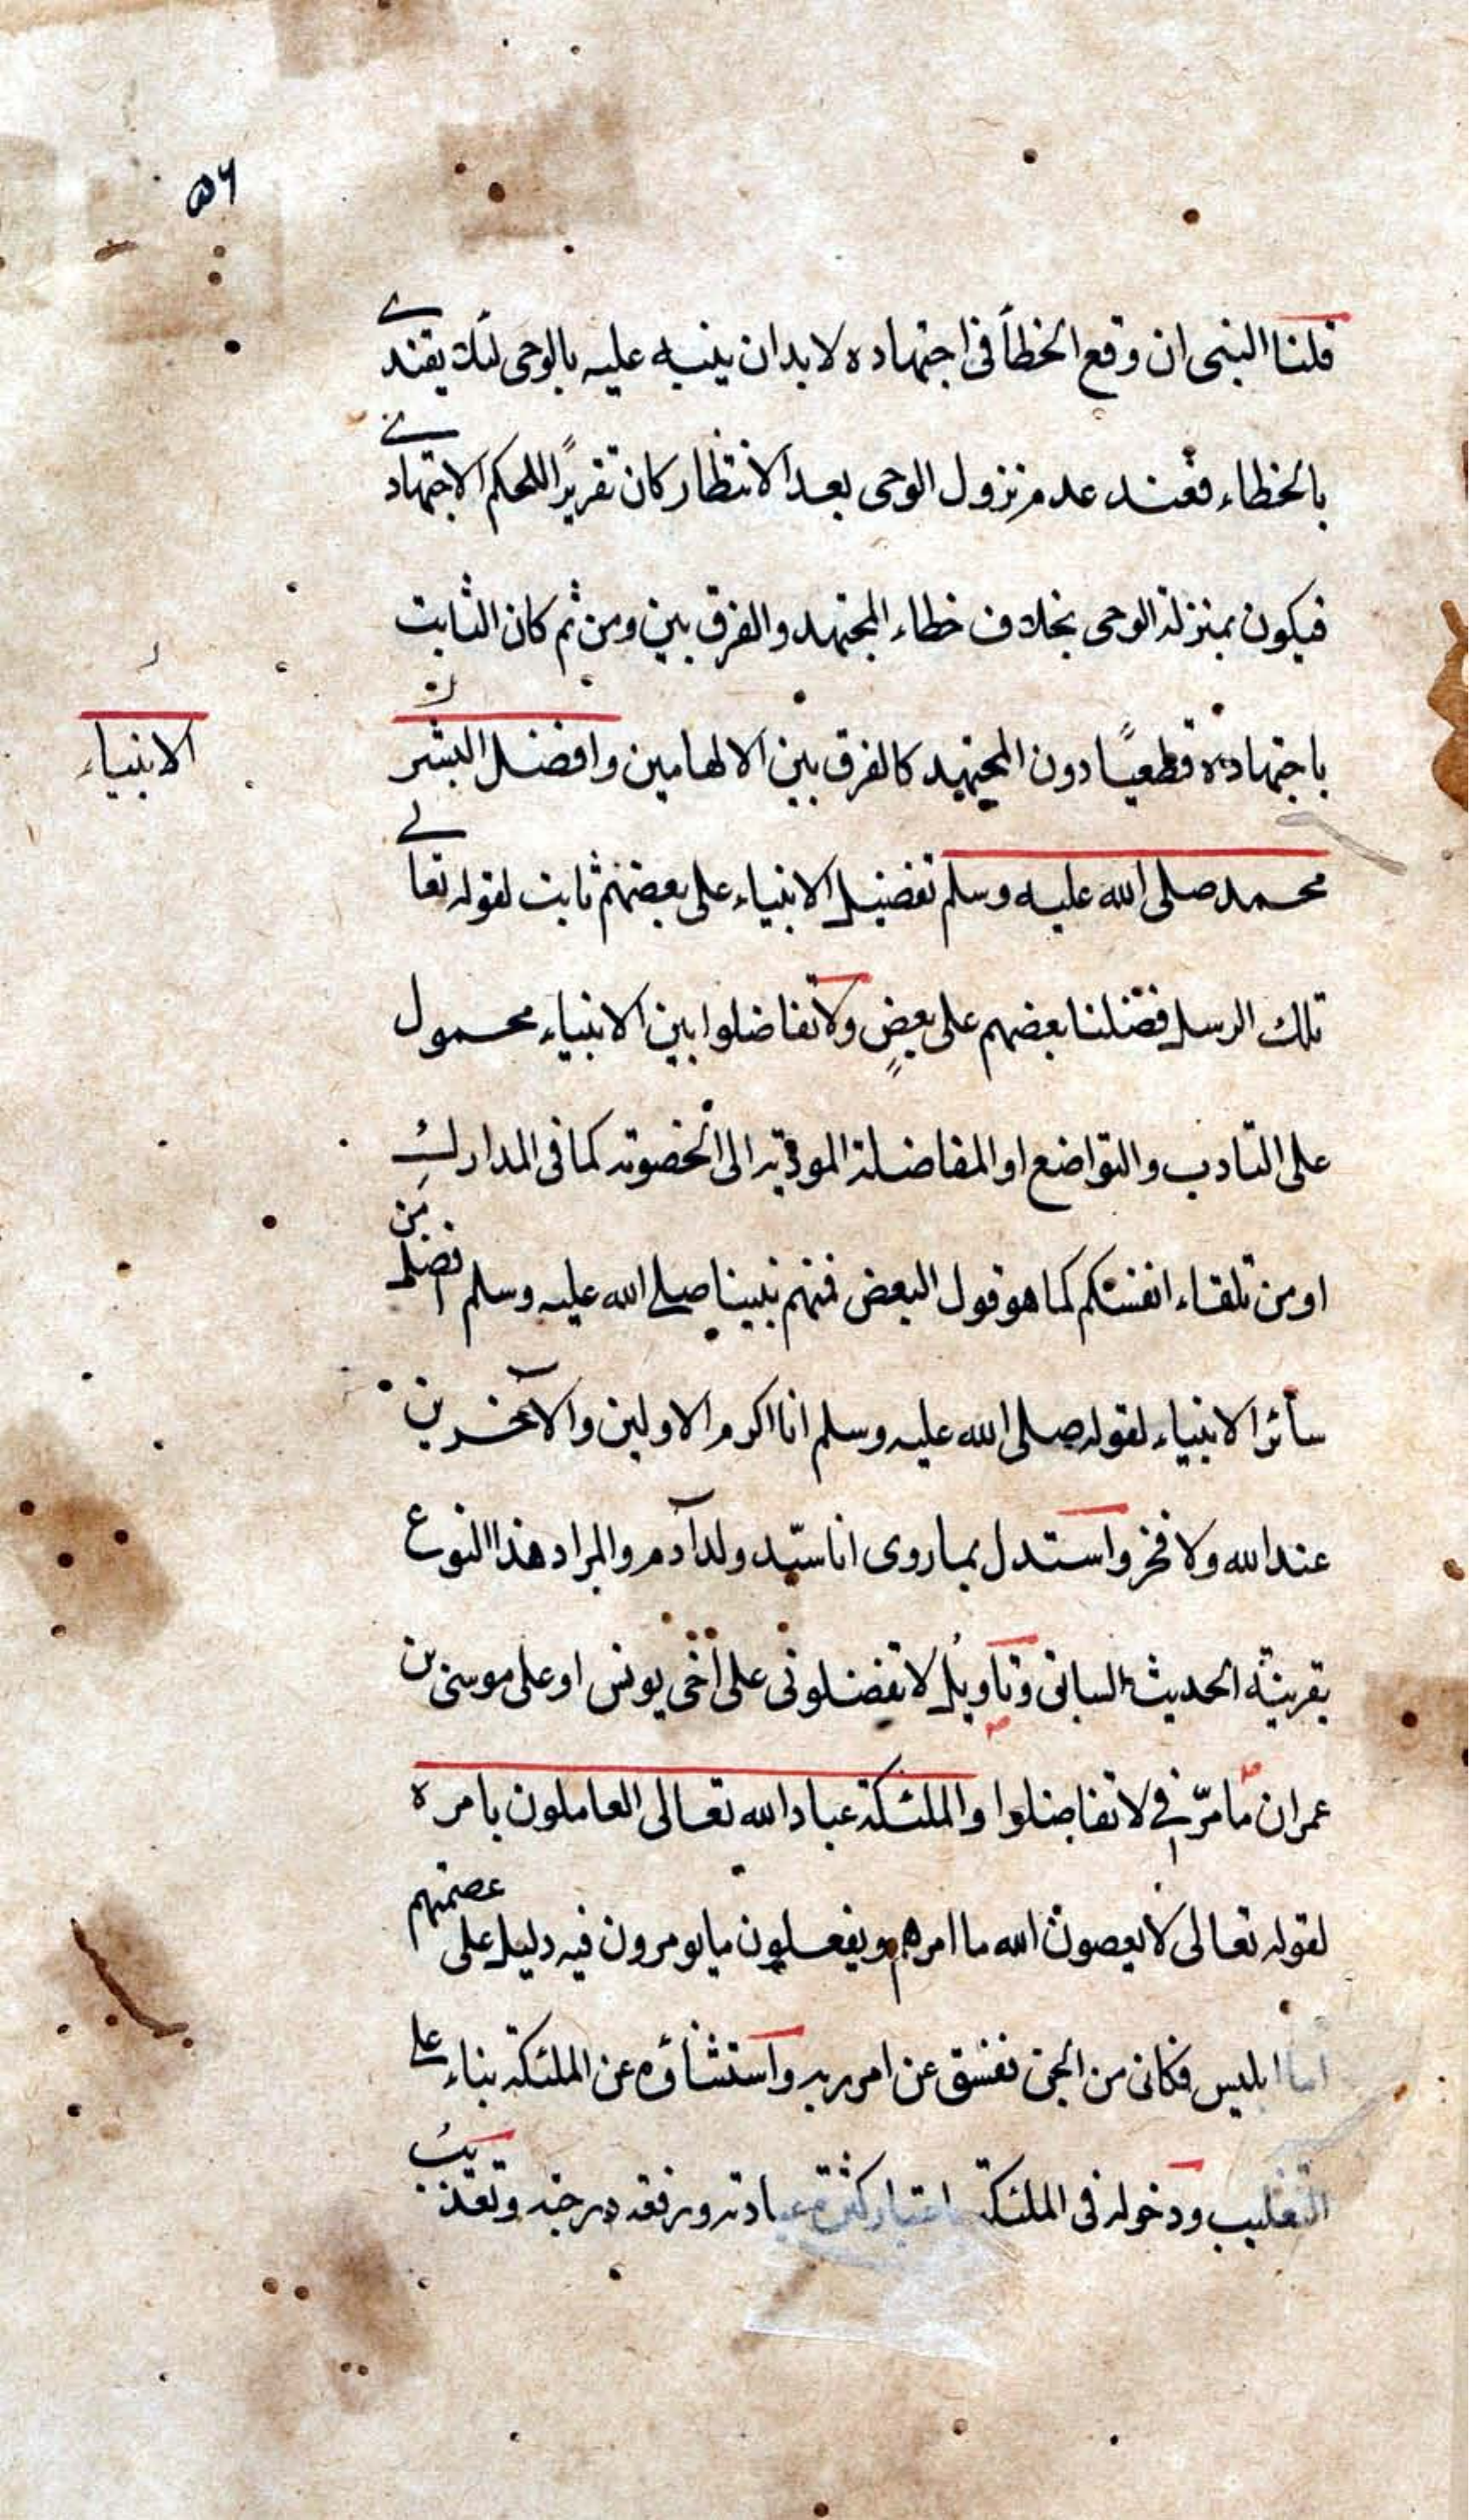 ٥٦
قلنا النبى ان وقع الخطأ فى اجتهاده لا بد ان ينبه عليه بالوحى لئلا يقتدے
بالخطاء فعند عدم نزول الوحى بعد الانتظار كان تقريرًا للحكم الاجتهادے
فيكون بمنزلة الوحى بخلاف خطاء المجتهد والفرق بين ومن ثم كان الثابت
باجتهاده قطعيًا دون المجتهد كالفرق بين الالهامين وافضل البشر
الانبياء
محمد صلى الله عليه وسلم تفضيل الانبياء على بعضهم ثابت لقوله تعالے
تلك الرسل فضلنا بعضهم على بعضٍ ولا تفاضلوا بين الانبياء محمول
على التادب والتواضع او المفاضلة المودية الى الخصومة كما فى المدارك
او من تلقاء انفسكم كما هو قول البعض فمنهم نبينا صلے الله عليه وسلم افضل من
سائر الانبياء لقوله صلى الله عليه وسلم انا اكرم الاولين والآخرين
عند الله ولا فخر واستدل بما روى انا سيّد ولد آدم والمراد هذا النوع
بقرينة الحديث السابق وتاويل لا تفضلونى على اخى يونس او على موسى بن
عمران ما مرّ فے لا تفاضلوا والملئكة عباد الله تعالى العاملون بامره
لقوله تعالى لا يعصون الله ما امرهم ويفعلون ما يومرون فيه دليل على عصمتهم
اما ابليس فكان من الجن ففسق عن امر ربه واستثناؤه عن الملئكة بناء علے
التغليب ودخوله فى الملئكة باعتبار كثرة عبادته ورفعة درجته وتعذيب